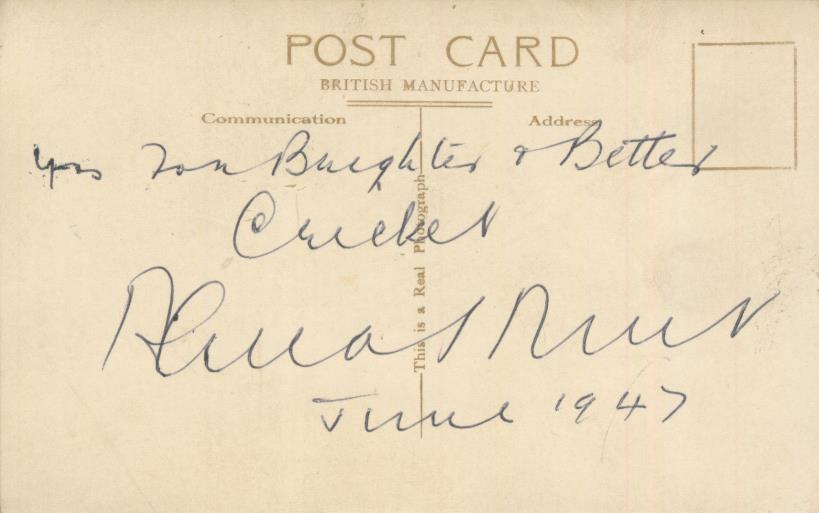 POST CARD
BRITISH MANUFACTURE
Communication
Address
yrs for Brighter & Better
Cricket
This is a Real Photograph
June 1947